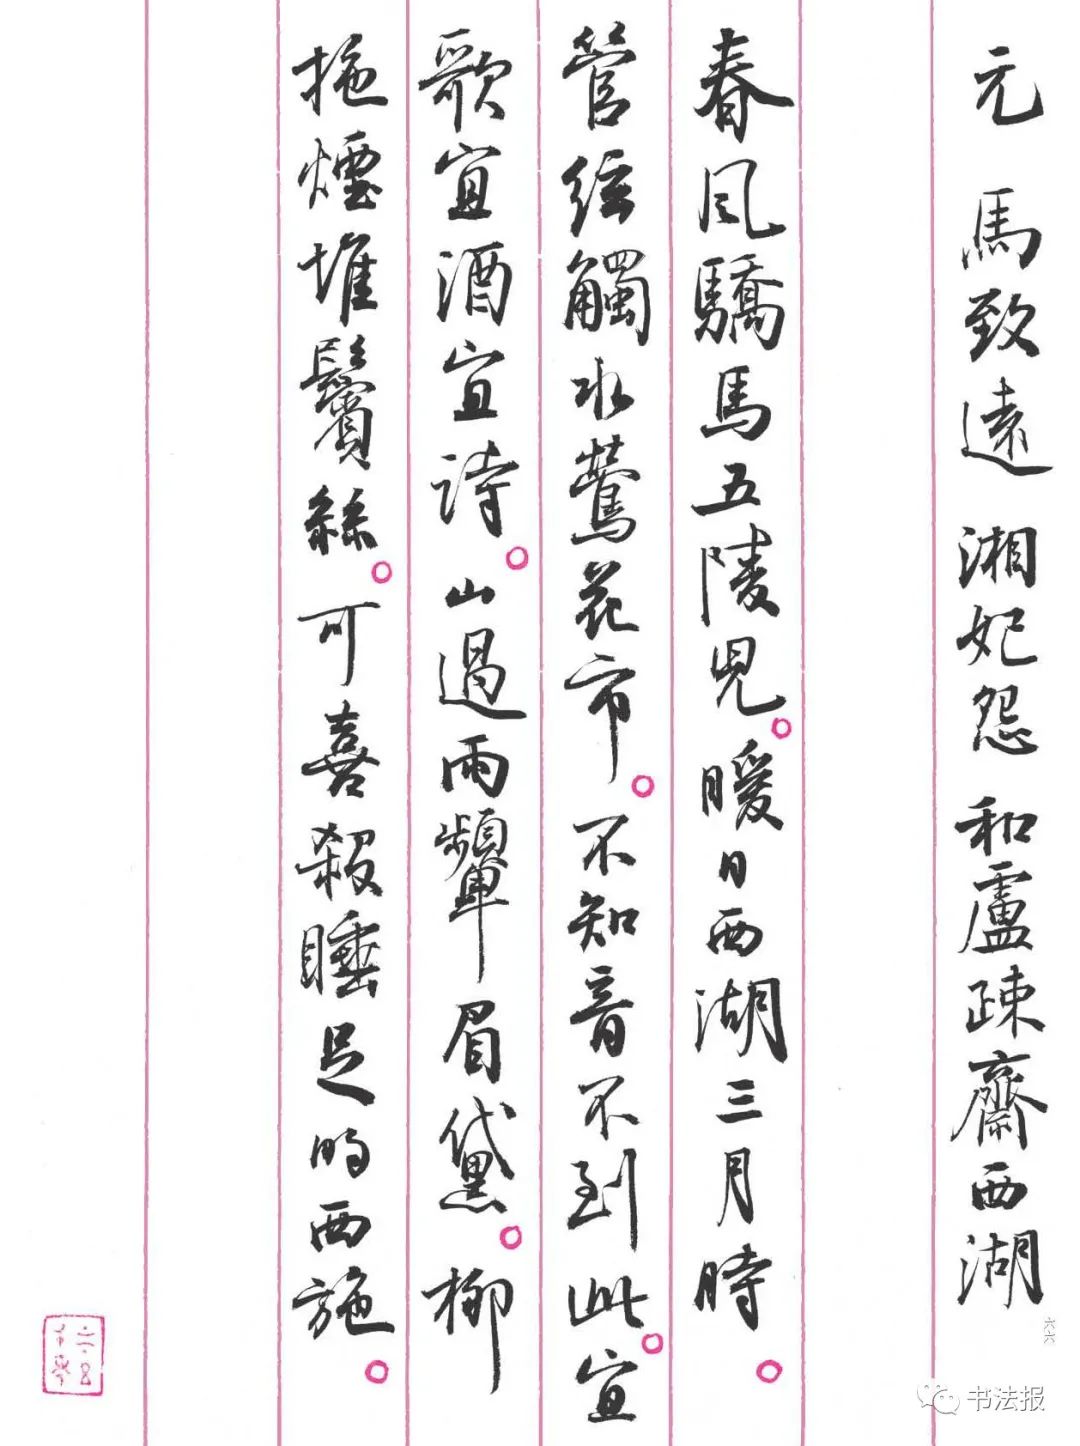 元 馬致遠 湘妃怨 和盧疎齋西湖
春風驕馬五陵兒。暖日西湖三月時。
管絃觸水鶯花市。不知音不到此。宜
歌宜酒宜詩。山過雨顰眉黛。柳
拖煙堆鬢絲。可喜殺睡足的西施。
六六
书法报